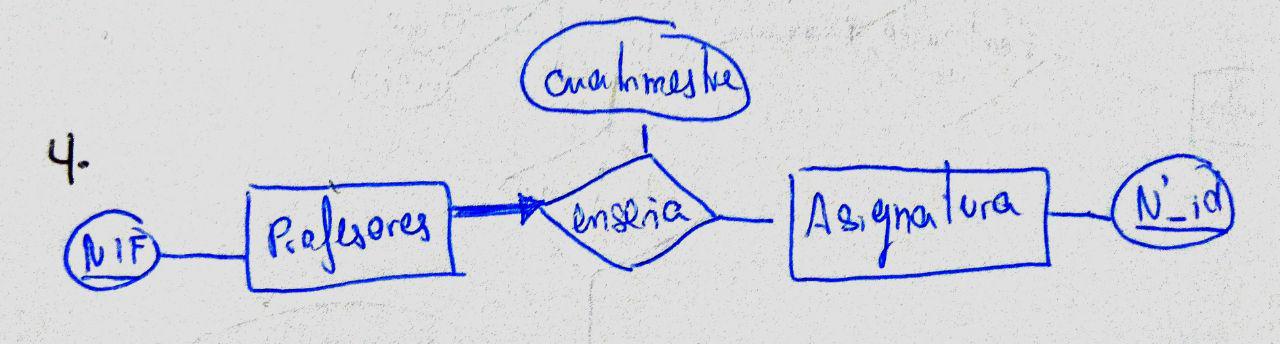 cuatrimestre
4.
NIF
Profesores
enseña
Asignatura
N_id